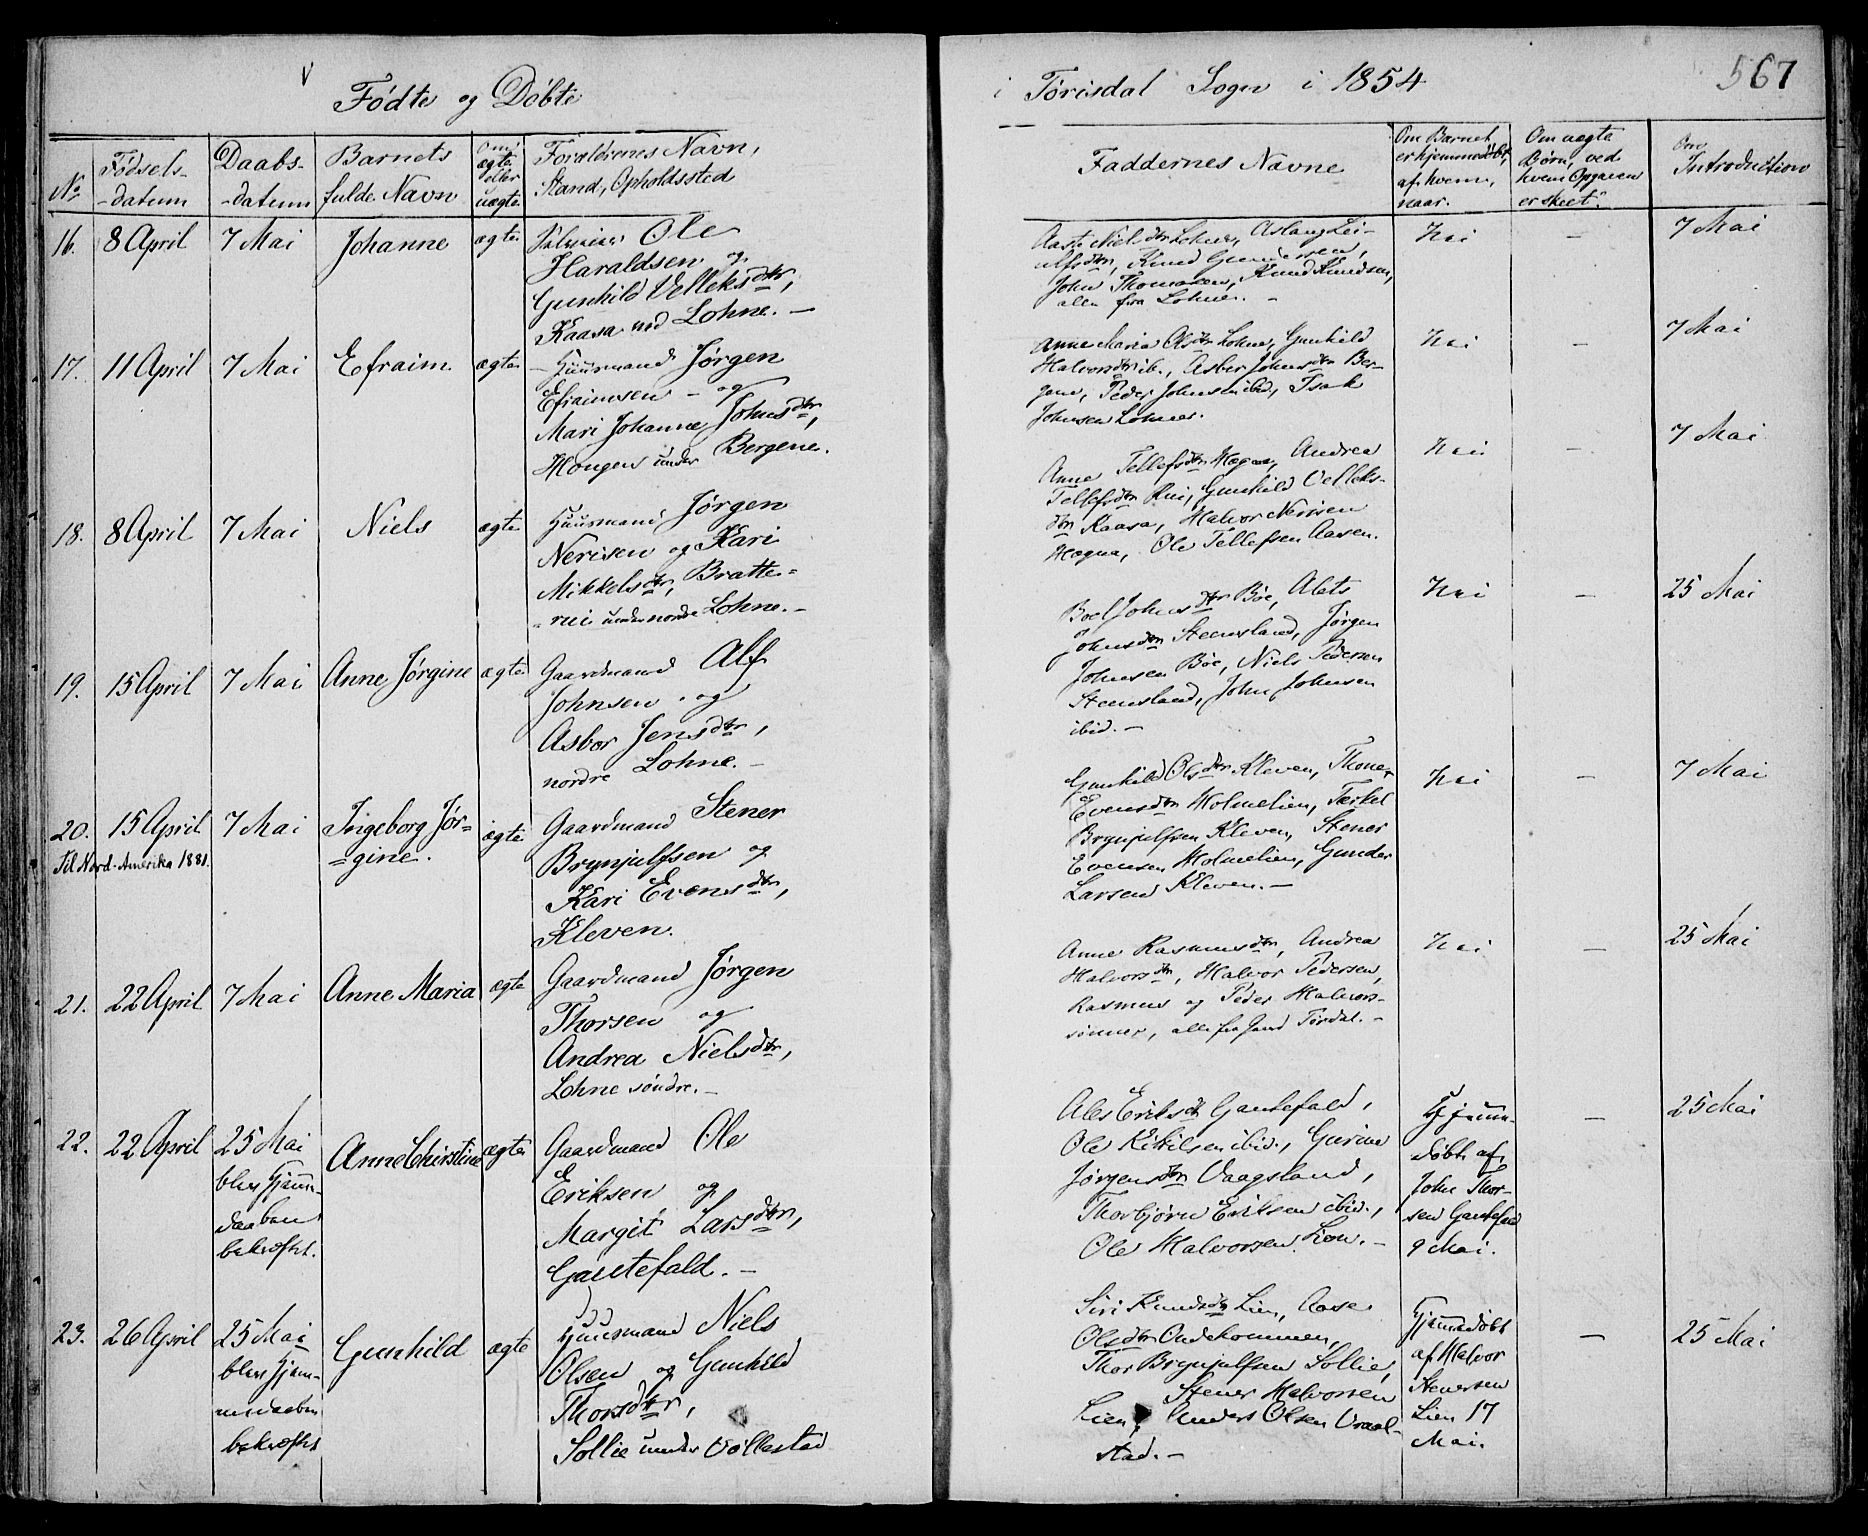 Fødte og Døbte
i Tørisdal Sogn i 1854
567
No
Fødsels-
-datum
Daabs-
-datum
Barnets
fulde Navn
Om
ægte
eller
uægte
Forældrenes Navn,
Stand, Opholdssted
Faddernes Navne
Om Barnet
er hjemmedøbt,
af hvem,
naar.
Om uægte
Børn, ved
hvem Opgaven
er skeet.
Om
Introduction
16. 8 April 7 Mai Johanne ægte
Ole
Haraldsen og
Gunhild Vetleksdtr,
Kaasa ved Lohne. —
Aaste Nielsdtr Lohne, Aslaug Lei-
ulfsdtr, Knud Gundersen,
John Thomasen, Knud Knudsen,
alle fra Lohne. —
Nei — 7 Mai
17. 11 April 7 Mai Efraim ægte
Huusmand Jørgen
Efraimsen - og
Mari Johanne Johnsdtr,
Hougen under Bergene.
Anne Maria Olsdtr Lohne, Gunhild
Halvorsdtr ib., Asber Johnsdtr Ber-
gene, Peder Johnsen ibid, Isak
Johnsen Lohne.
Nei — 7 Mai
18. 8 April 7 Mai Niels ægte
Huusmand Jørgen
Nerisen og Kari
Mikkelsdtr, Bratte=
=rui under nordre Lohne. —
Anne Tellefsdtr Hegna, Andrea
Tellefsdtr Rui, Gunhild Vetleks-
dtr Kaasa, Halvor Nerisen
Hegna, Ole Tellefsen Aasen.
Nei — 7 Mai
19. 15 April 7 Mai Anne Jørgine ægte
Gaardmand Alf
Johnsen og
Asbor Jensdtr,
nordre Lohne. —
Boel Johnsdtr Bøe, Alets
Johnsdtr Steensland, Jørgen
Johnsen Bøe, Niels Pedersen
Steensland, John Johnsen
ibid. —
Nei — 25 Mai
20. 15 April 7 Mai Ingeborg Jør=
=gine. ægte
Til Nord-Amerika 1881.
Gaardmand Stener
Brynjulfsen og
Kari Evensdtr,
Kleven.
Gunhild Olsdtr Kleven, Thone
Evensdtr Holmelien, Terkel
Brynjulfsen Kleven, Stener
Evensen Holmelien, Gunder
Larsen Kleven. —
Nei — 7 Mai
21. 22 April 7 Mai Anne Maria ægte
Gaardmand Jørgen
Thorsen og
Andrea Nielsdtr,
Lohne søndre. —
Anne Rasmusdtr, Andrea
Halvorsdtr, Halvor Pedersen,
Rasmus og Peder Halvors-
sønner, alle fra Tørdal. —
Nei — 25 Mai
22. 22 April 25 Mai
blev Hjem-
daaben
bekræftet.
Anne Chirstine ægte
Gaardmand Ole
Eriksen og
Margit Larsdtr,
Gautefald. —
Ales Eriksdt Gautefald,
Ole Kittilsen ibid., Gurine
Jørgensdtr Vaagsland,
Thorbjørn Eriksen ibid.,
Ole Halvorsen Lien. —
Hjemme-
døbt af
John Thor-
sen Gautefald
9 Mai.
— 25 Mai
23. 26 April 25 Mai
blev Hjem-
medaaben
bekræftet
Gunhild ægte
Huusmand Niels
Olsen og Gunhild
Thorsdtr,
Sollie under Vøllestad
Siri Knudsdtr Lien, Aase
Olsdtr
Thor Brynjulfsen Sollie,
Stener Halvorsen
Lien, Anders Olsen Vraal-
stad. —
Hjemmedøbt
af Halvor
Stenersen
Lien 17
Mai.
— 25 Mai